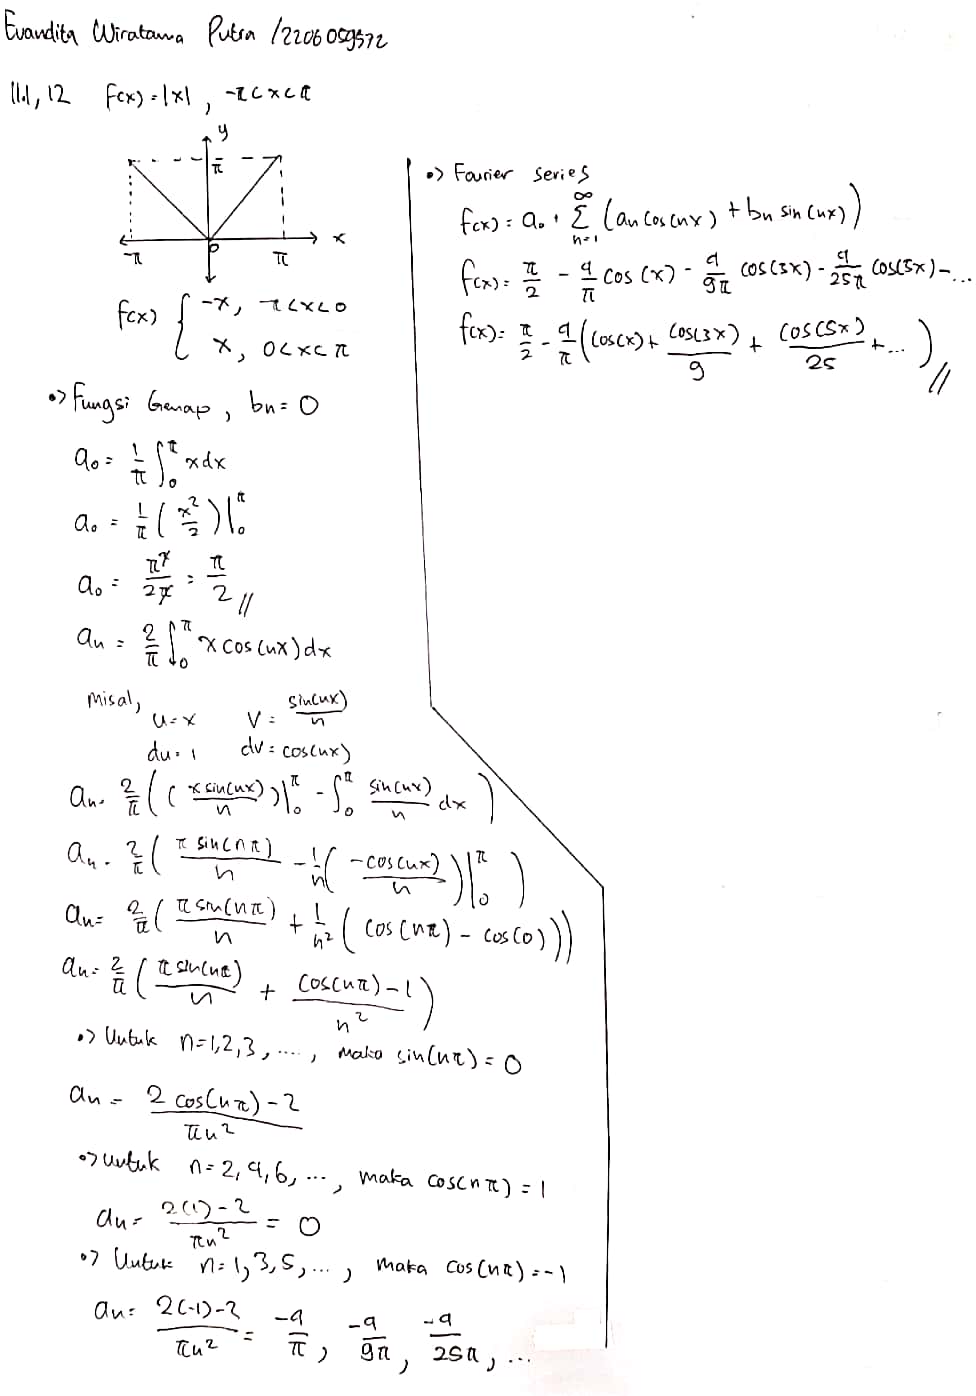 Evandita Wiratama Putra /2206059572
11.1, 12 f(x) = |x| , -π < x < π
y
π
x
-π
0
π
f(x) { -x, -π<x<0
x, 0<x<π
•> Fungsi Genap, bn = 0
a₀ = 1/π ∫₀^π x dx
a₀ = 1/π (x²/2)|₀^π
a₀ = π²/2π = π/2 //
an = 2/π ∫₀^π x cos(nx) dx
misal,
u = x v = sin(nx)/n
du = 1 dv = cos(nx)
an = 2/π ((x sin(nx)/n)|₀^π - ∫₀^π sin(nx)/n dx)
an = 2/π (π sin(nπ)/n - 1/n (-cos(nx)/n)|₀^π)
an = 2/π (π sin(nπ)/n + 1/n² (cos(nπ) - cos(0)))
an = 2/π (π sin(nπ)/n + (cos(nπ) - 1)/n²)
•> Untuk n=1,2,3, ...., maka sin(nπ) = 0
an = (2 cos(nπ) - 2)/πn²
•> untuk n = 2,4,6, ..., maka cos(nπ) = 1
an = (2(1) - 2)/πn² = 0
•> Untuk n = 1,3,5, ..., maka cos(nπ) = -1
an = (2(-1) - 2)/πn² = -4/π, -4/9π, -4/25π, ...
•> Fourier series
f(x) = a₀ + ∑_{n=1}^∞ (an cos(nx) + bn sin(nx))
f(x) = π/2 - 4/π cos(x) - 4/9π cos(3x) - 4/25π cos(5x) - ...
f(x) = π/2 - 4/π (cos(x) + cos(3x)/9 + cos(5x)/25 + ...) //